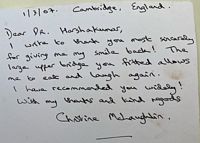 1/3/07. Cambridge, England.
Dear Dr. Harshakumar,
I write to thank you most sincerely
for giving me my smile back! The
large upper bridge you fitted allows
me to eat and laugh again.
I have recommended you widely!
With my thanks and kind regards
Christine McLaughlin.